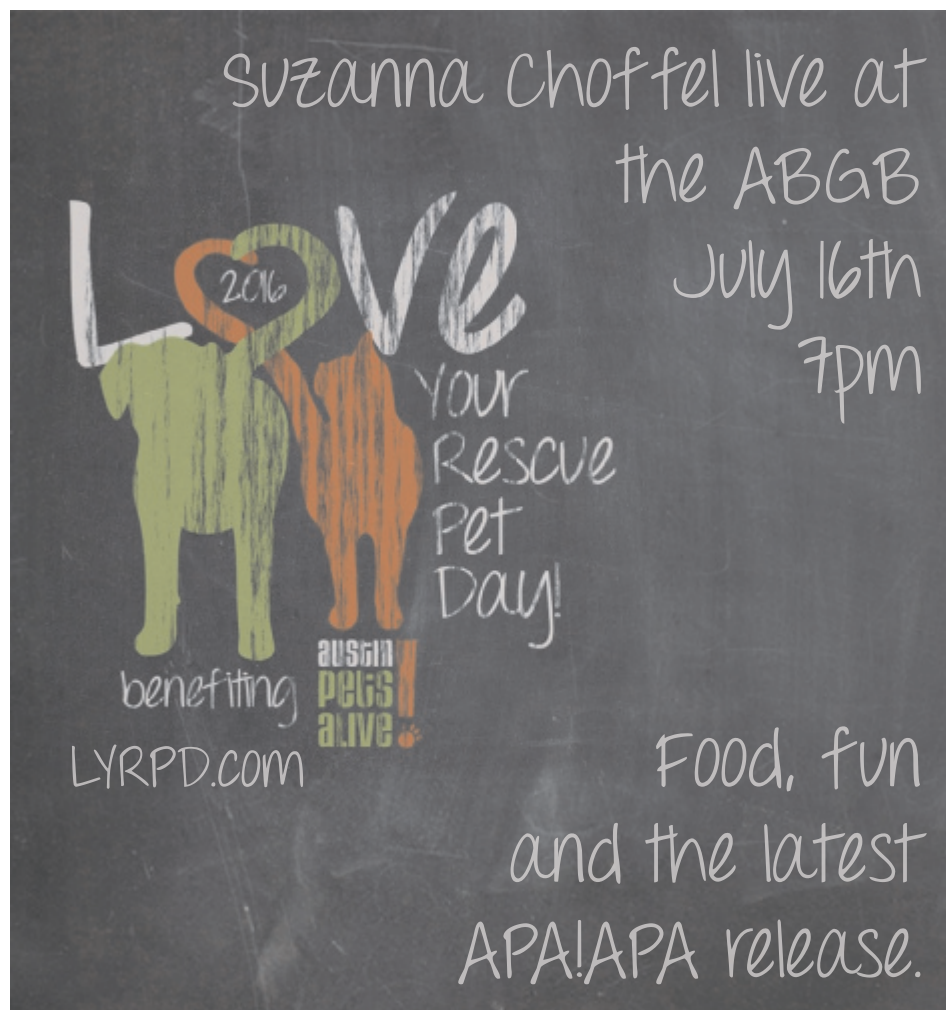 Suzanna Choffel live at
the ABGB
July 16th
7pm
LOVE
2016
Your
Rescue
Pet
Day!
benefiting
austin
pets
alive!
LYRPD.com
Food, fun
and the latest
APA!APA release.